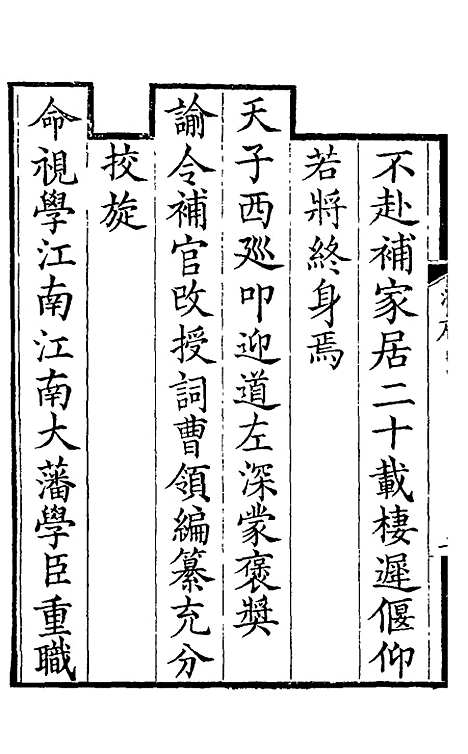 不赴補家居二十載棲遲偃仰
若將終身焉
天子西廵叩迎道左深蒙褒奬
諭令補官改授詞曹領編纂充分
挍旋
命視學江南江南大藩學臣重職